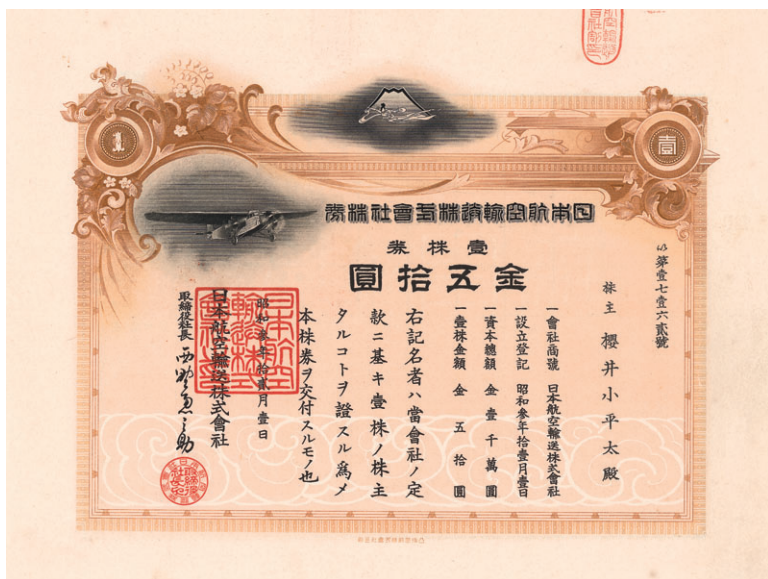 日本航空輸送株式會社株券
壹株券
金五拾圓
1
壹
第壹七壹六貳號
株主 櫻井小平太殿
一會社商號 日本航空輸送株式會社
一設立登記 昭和參年拾壹月壹日
一資本總額 金壹千萬圓
一壹株金額 金五拾圓
右記名者ハ當會社ノ定
款ニ基キ壹株ノ株主
タルコトヲ證スル爲メ
本株券ヲ交付スルモノ也
昭和參年拾貳月壹日
日本航空輸送株式會社
取締役社長
日本航空
輸送株式
會社之印